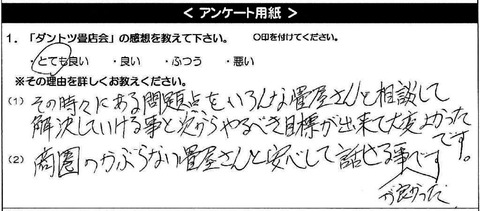 < アンケート用紙 >
1. 「ダントツ畳店会」の感想を教えて下さい。 ○印を付けてください。
・とても良い ・良い ・ふつう ・悪い
※その理由を詳しくお教えください。
(1) その時々にある問題点をいろんな畳屋さんと相談して
解決していける事と次からやるべき目標が出来て大変よかった
です。
(2) 商圏のかぶらない畳屋さんと安心して話せる事です
が良かった